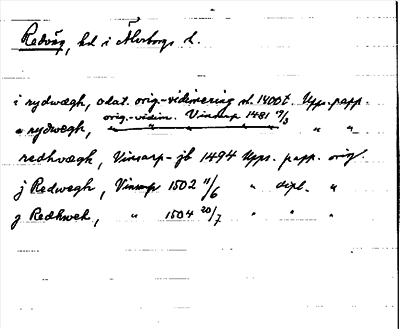 Redväg, hd i Älvsborgs l.
i rydwægh, odat. orig.-vidimering sl. 1400t. Upps. papp.
" rydwægh, orig.-vidim. Vinsarp 1481 19/3 " "
redhwægh, Vinsarp-jb 1494 Upps. papp. orig.
j Redwegh, Vinsarp 1502 11/6 " dipl. "
j Redhwek, " 1504 20/7 " " "